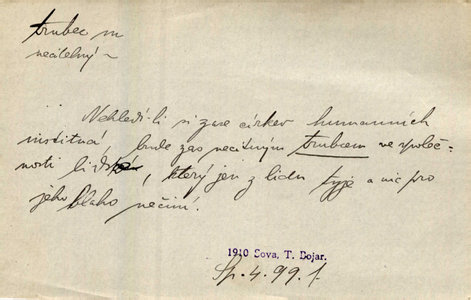 trubec m
necitelný ~
Nehledí-li si zase církev humanních
institucí, bude zas necitným trubcem ve společ-
nosti lidské, který jen z lidu tyje a nic pro
jeho blaho nečiní.
1910 Sova, T. Dojar.
Sp. 4. 99. f.